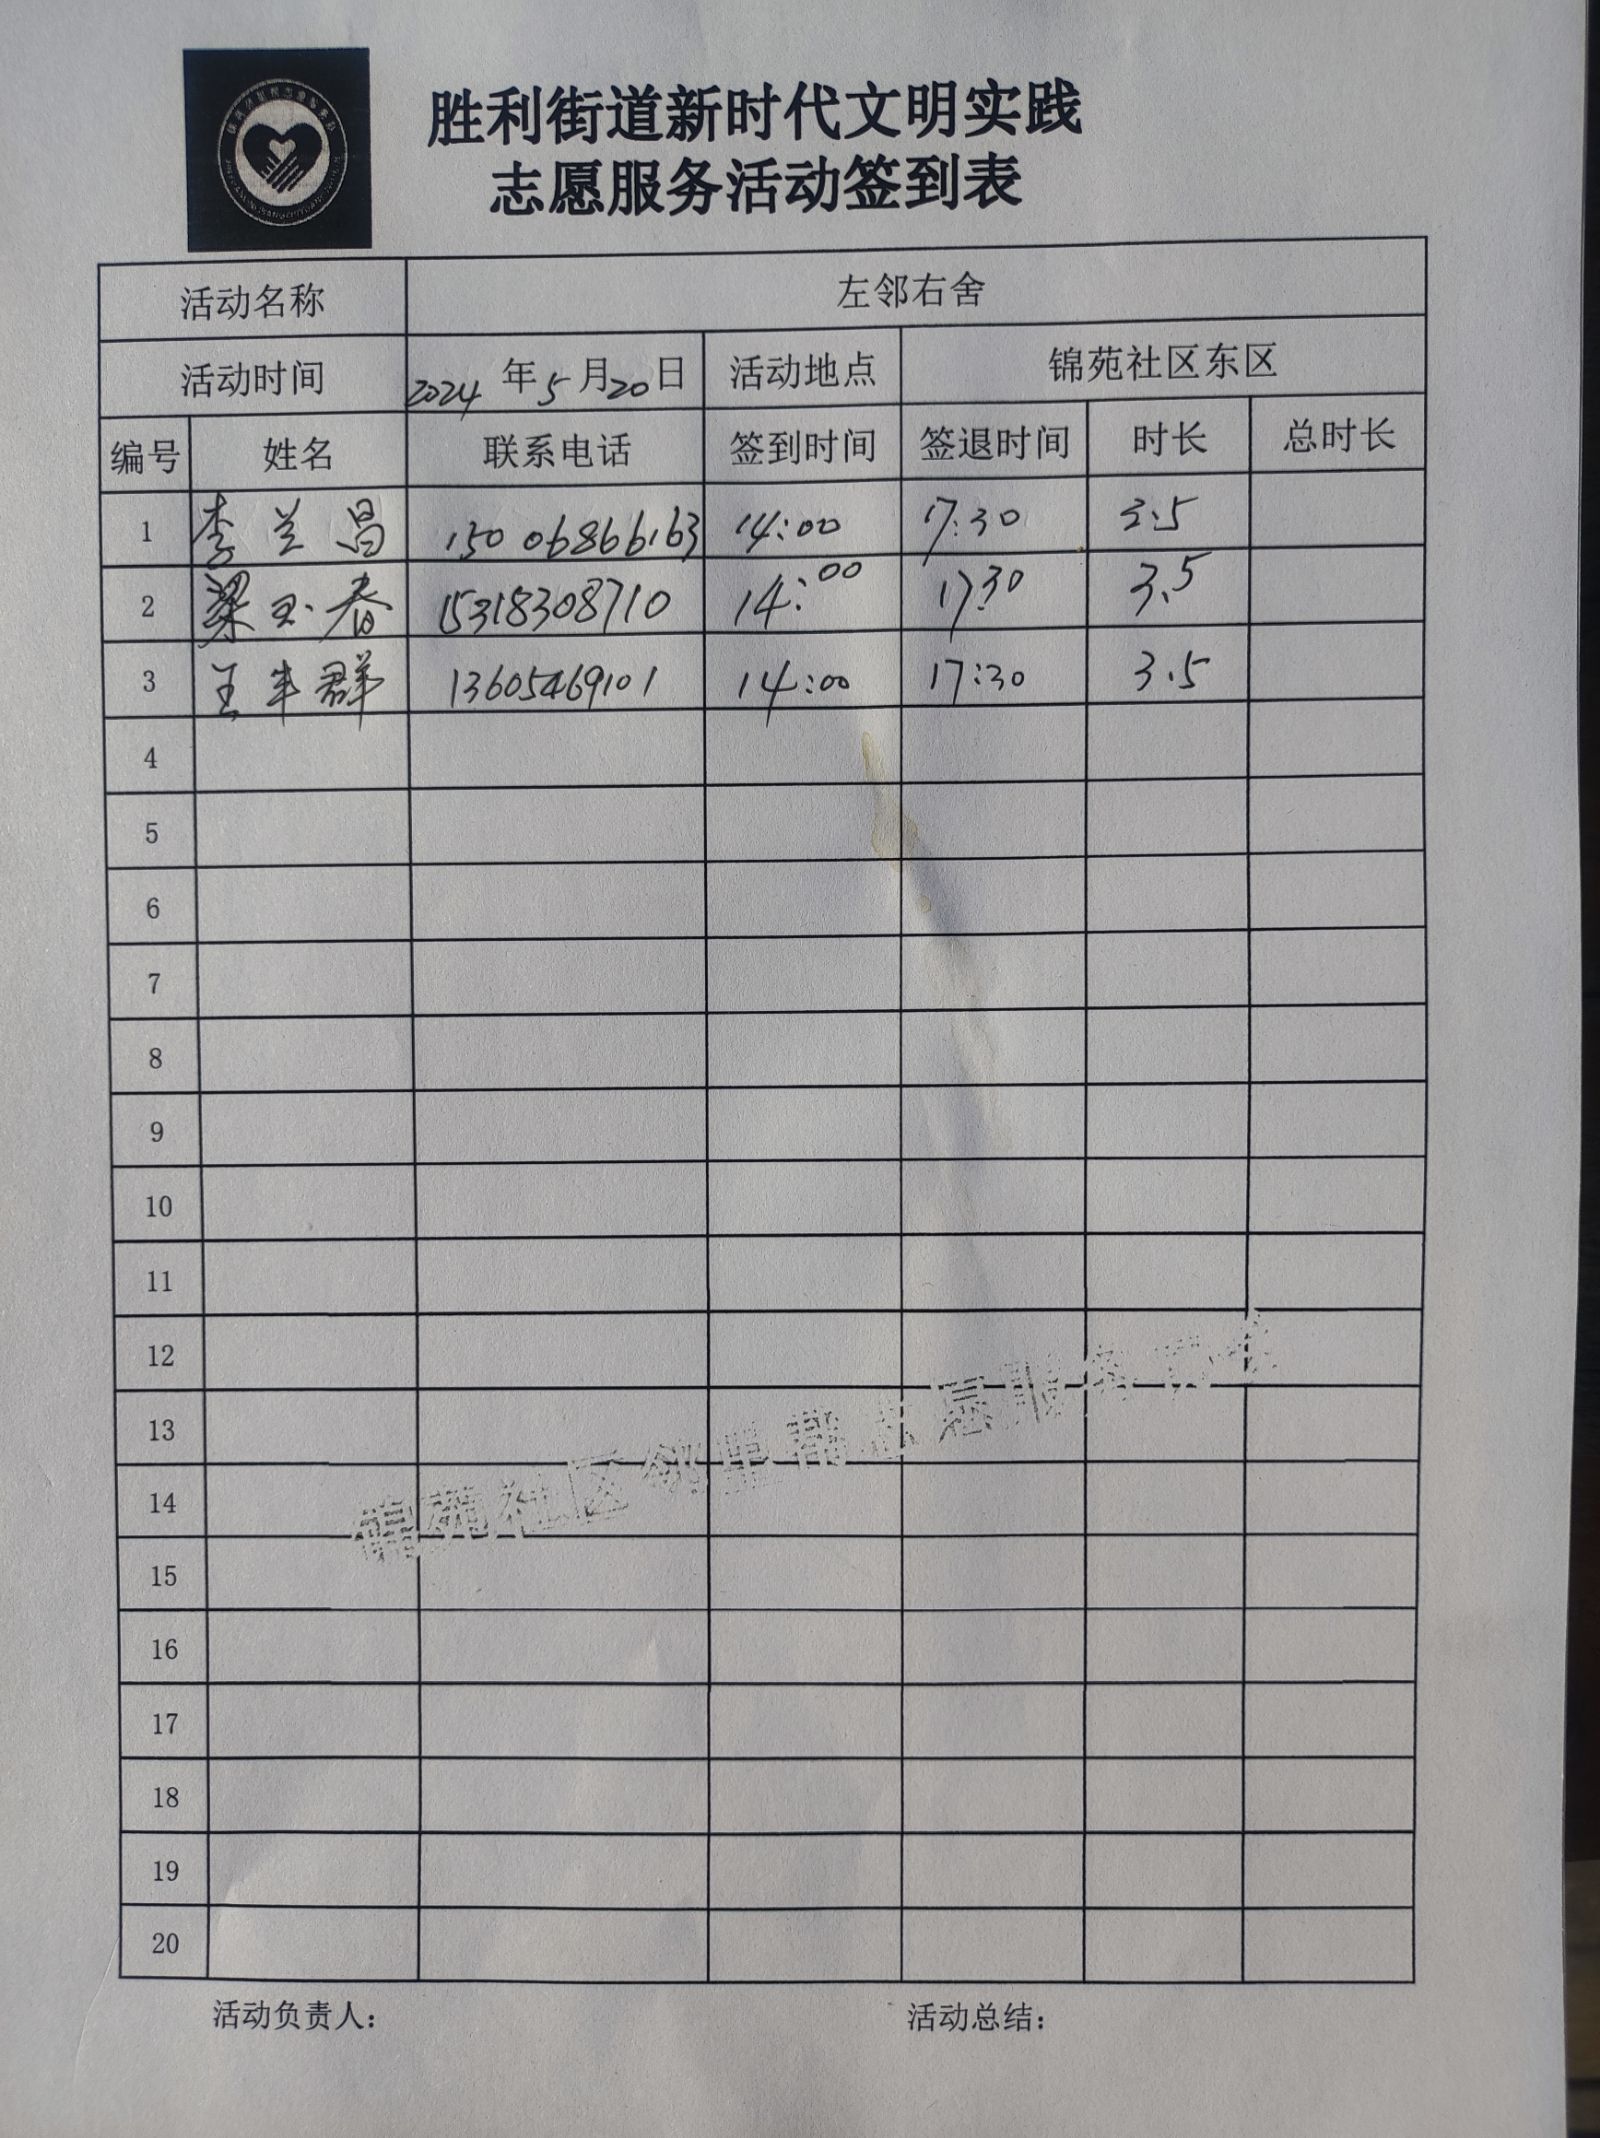 胜利街道新时代文明实践
志愿服务活动签到表
活动名称 左邻右舍
活动时间 2024年5月20日 活动地点 锦苑社区东区
编号 姓名 联系电话 签到时间 签退时间 时长 总时长
1 李兰昌 15006866163 14:00 17:30 3.5
2 梁玉春 15318308710 14:00 17:30 3.5
3 王群 13605469101 14:00 17:30 3.5
4
5
6
7
8
9
10
11
12
13
锦苑社区邻里帮志愿服务
14
15
16
17
18
19
20
活动负责人： 活动总结：